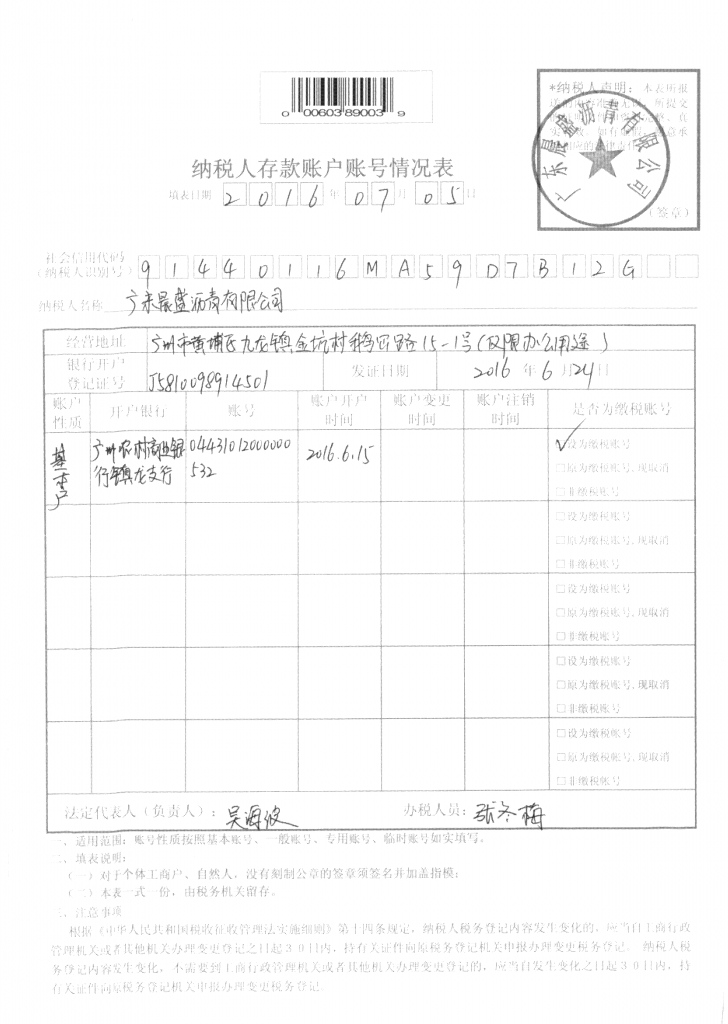 0 00603 89003 9
*纳税人声明：本表所报
广东晨盛沥青有限公司
(签章)
纳税人存款账户账号情况表
填表日期 2016年07月05日
社会信用代码
(纳税人识别号) 91440116MA59D7B12G
纳税人名称 广东晨盛沥青有限公司
经营地址 广州市黄埔区九龙镇金坑村 路15-1号(仅限办公用途)
银行开户
登记证号 J5810098914501 发证日期 2016年6月24日
账户
性质 开户银行 账号 账户开户
时间 账户变更
时间 账户注销
时间 是否为缴税账号
基本户 广州农村商业银
行镇龙支行 04431012000000
532 2016.6.15 ✓设为缴税账号
□原为缴税账号,现取消
□非缴税账号
□设为缴税账号
□原为缴税账号,现取消
□非缴税账号
□设为缴税账号
□原为缴税账号,现取消
□非缴税账号
□设为缴税账号
□原为缴税账号,现取消
□非缴税账号
□设为缴税帐号
□原为缴税帐号,现取消
□非缴税帐号
法定代表人（负责人）：吴海波 办税人员：张冬梅
一、适用范围：账号性质按照基本账号、一般账号、专用账号、临时账号如实填写。
二、填表说明：
（一）对于个体工商户、自然人，没有刻制公章的签章须签名并加盖指模；
（二）本表一式一份，由税务机关留存。
三、注意事项
根据《中华人民共和国税收征收管理法实施细则》第十四条规定，纳税人税务登记内容发生变化的，应当自工商行政
管理机关或者其他机关办理变更登记之日起30日内，持有关证件向原税务登记机关申报办理变更税务登记。 纳税人税
务登记内容发生变化，不需要到工商行政管理机关或者其他机关办理变更登记的，应当自发生变化之日起30日内，持
有关证件向原税务登记机关申报办理变更税务登记.